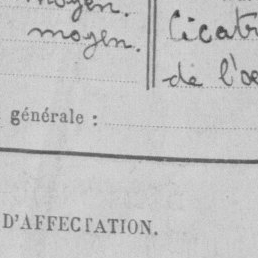 moyen.
moyen.
Cicatr
de l'œ
générale :
D'AFFECTATION.